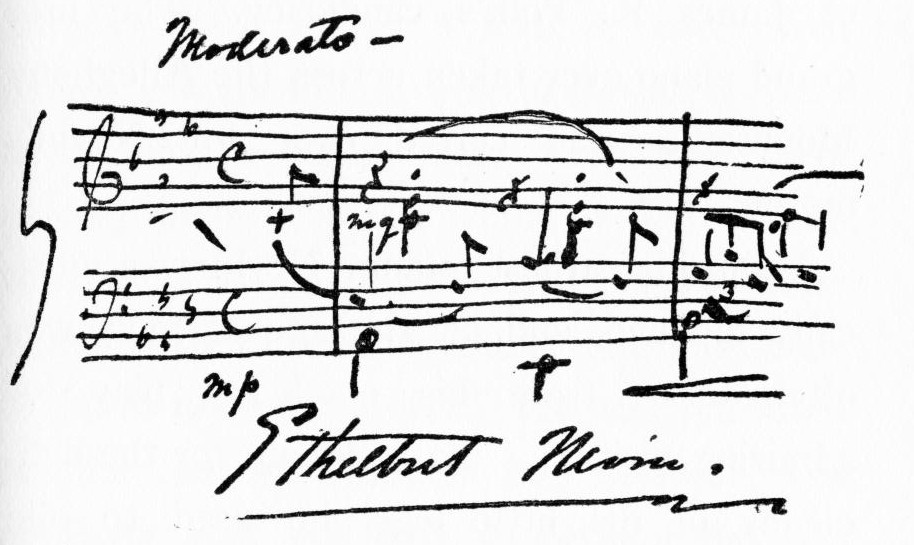 Moderato –
mg
3
mp
Ethelbert Nevin.